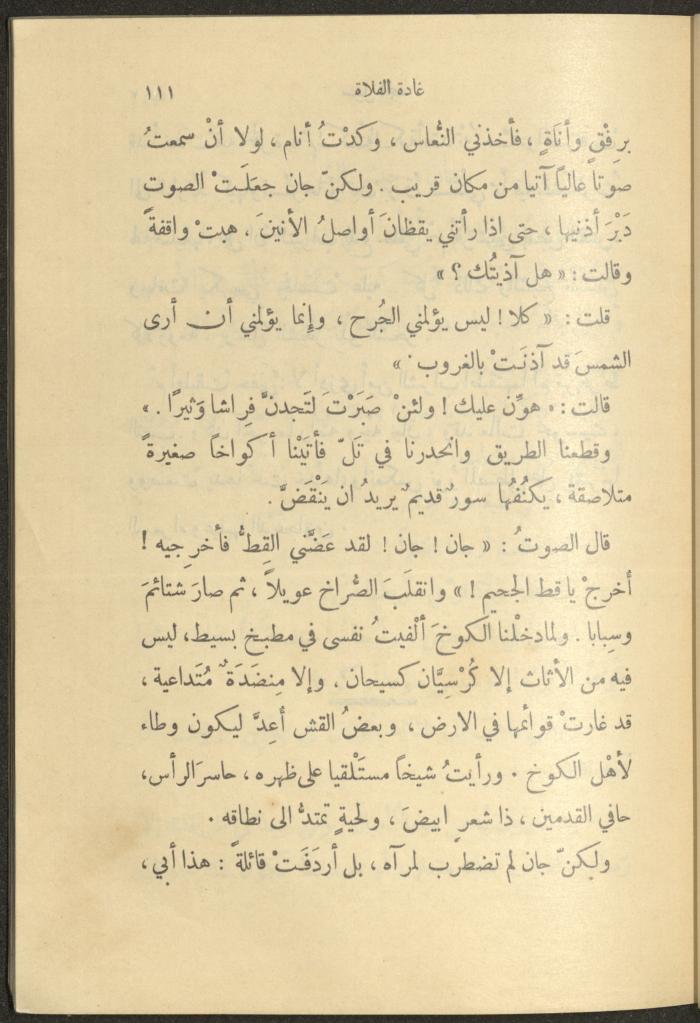 غادة الفلاة ١١١
برِفْقٍ وأنَاةٍ ، فأخذني النُّعاس ، وكدْتُ أنام ، لولا أنْ سمعتُ
صوتاً عالياً آتيا من مكان قريب . ولكنّ جان جعَلَتْ الصوت
دَبْرَ أذنيها ، حتى اذا رأتني يقظانَ أواصلُ الأنينَ ، هبتْ واقفةً
وقالت : « هل آذيتُك ؟ »
قلت : « كلا ! ليس يؤلمني الجُرح ، وإنما يؤلمني أن أرى
الشمسَ قد آذنَتْ بالغروب . »
قالت : « هوِّن عليك ! ولئنْ صَبَرْتَ لتَجدنَّ فِراشا وَثيرًا . »
وقطعنا الطريق وانحدرنا في تَلّ فأتَيْنا أكواخاً صغيرةً
متلاصقة ، يكنُفُها سورٌ قديمٌ يريدُ ان ينْقَضَّ .
قال الصوتُ : « جان ! جان ! لقد عَضَّني القِطُّ فأخرِجيه !
أخرجْ يا قط الجحيم ! » وانقلَبَ الصُّراخ عويلاً ، ثم صارَ شتائمَ
وسِبابا . ولما دخلْنا الكوخَ ألْفيتُ نفسى في مطبخ بسيط ، ليس
فيه من الأثاث إلا كُرْسيَّان كسيحان ، وإلا مِنضَدَةٌ مُتَداعية ،
قد غارتْ قوائمها في الارض ، وبعضُ القش أعِدَّ ليكون وطاء
لأهْل الكوخ . ورأيتُ شيخاً مستَلْقيا على ظهره ، حاسرَ الرأس ،
حافي القدمين ، ذا شعرٍ ابيضَ ، ولحيةٍ تمتدُّ الى نطاقه .
ولكنّ جان لم تضطرب لمرآه ، بل أردَفَتْ قائلةً : هذا أبي ،